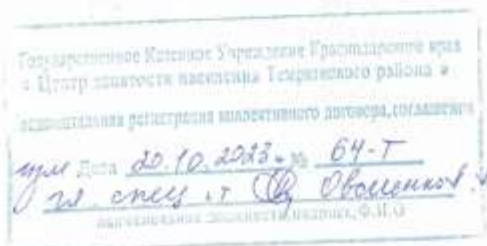 Государственное Казенное Учреждение Краснодарского края
« Центр занятости населения Темрюкского района »
Уведомительная регистрация коллективного договора, соглашения
Дата 20.10.2023 г. № 64-Т
гл. спец
наименование должности, подпись, Ф.И.О